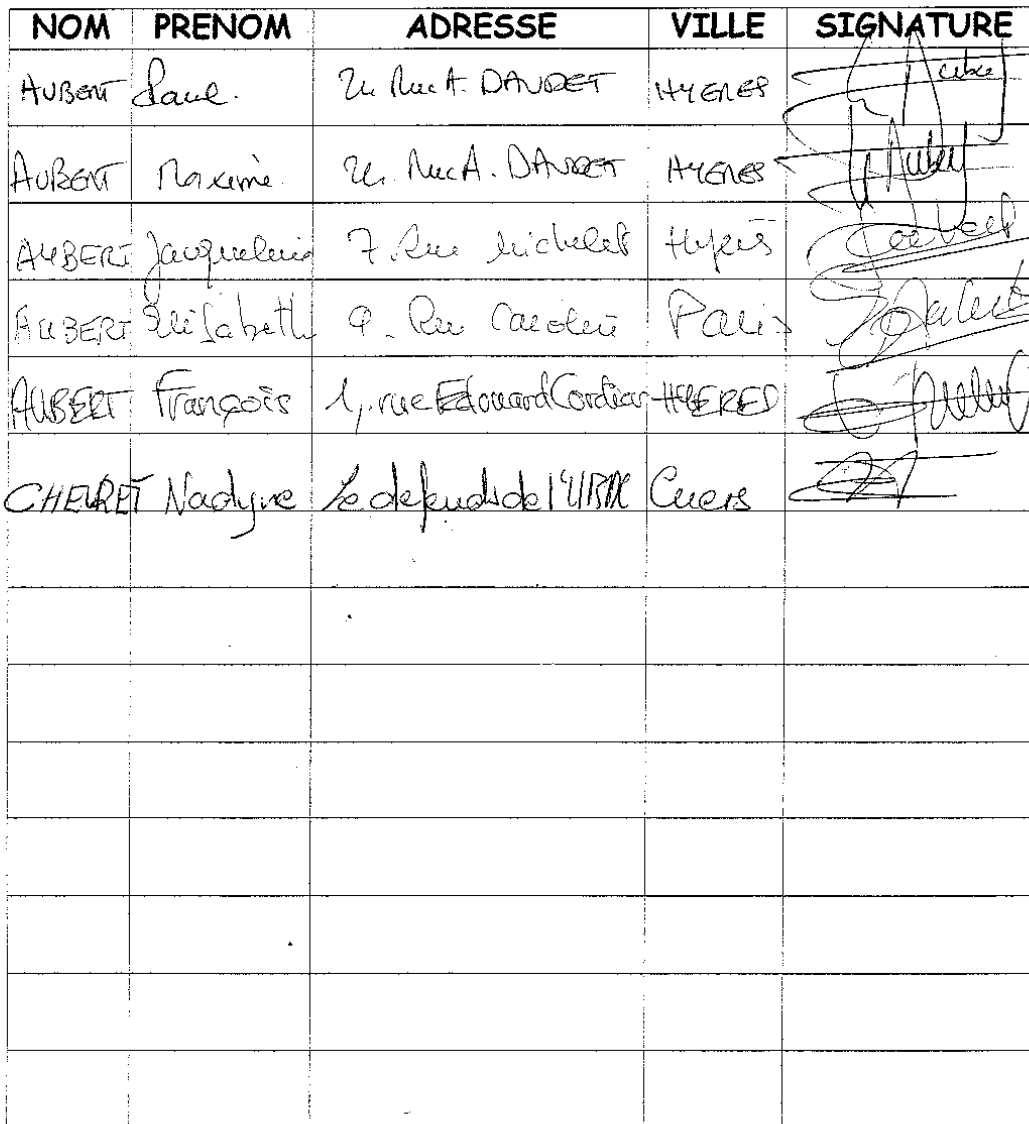 NOM PRENOM ADRESSE VILLE SIGNATURE
AUBERT Paul. Rue A. DAUDET HYERES
AUBERT Maxime. Rue A. DAUDET HYERES Aubert
AUBERT Jacqueline 7. Rue Michelet Hyères
AUBERT Elisabeth 9. Rue Paris
AUBERT François 1, rue Edouard Cordier HYERES
CHEVRET Nadyne Le defends de Cuers